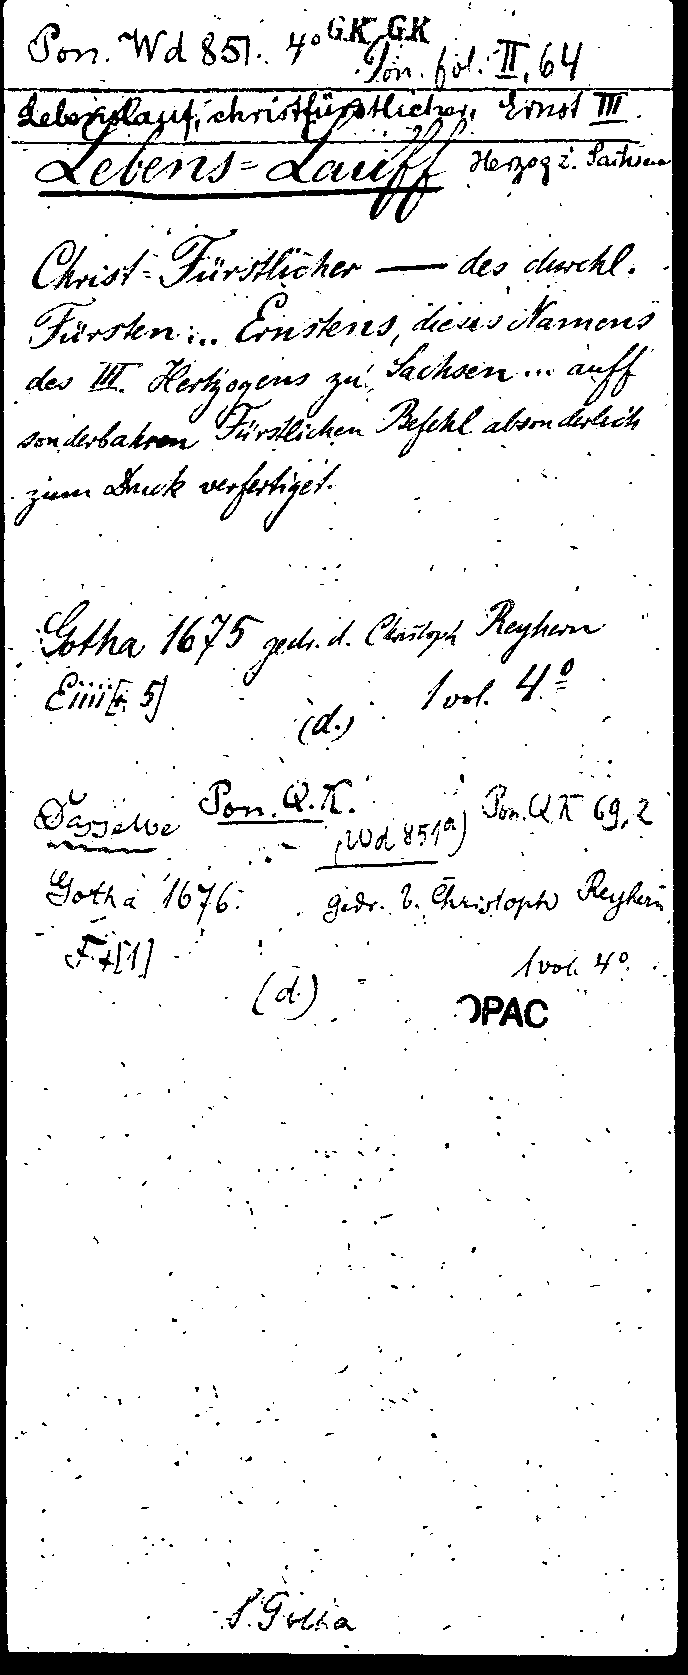 Pon. Wd 851. 4° G.K G.K
Pon. fol. II, 64
Lebenslauf, christfürstlicher, Ernst III.
Lebens=Lauff Herzog z. Sachsen
Christ=Fürstlicher — des durchl.
Fürsten... Ernstens, dieses Namens
des III. Hertzogens zu Sachsen... auff
sonderbahren Fürstlichen Befehl absonderlich
zum Druck verfertiget.
Gotha 1675 gedr. d. Christoph Reyhern
Eiiii[+ 5] 1 vol. 4°
(d.)
Dasselbe Pon. Q.K. (Wd 851a) Pon. QK 69,2
Gotha 1676. gedr. d. Christoph Reyhern
F+[1] 1 vol. 4°.
(d.)
OPAC
S. Gotha